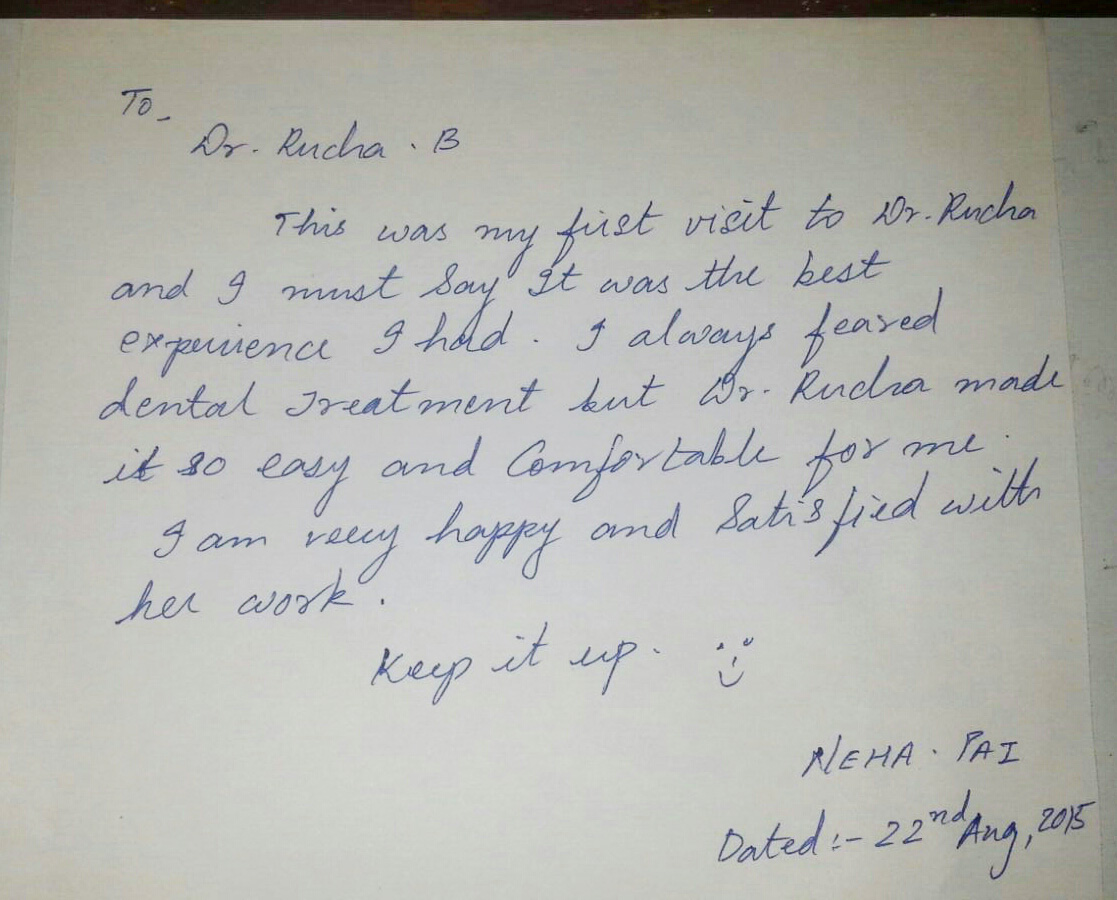 To -
Dr. Rucha . B
This was my first visit to Dr. Rucha
and I must Say It was the best
experience I had . I always feared
dental Treatment but Dr. Rucha made
it so easy and Comfortable for me .
I am very happy and Satisfied with
her work .
Keep it up .
NEHA . PAI
Dated :- 22nd Aug, 2015